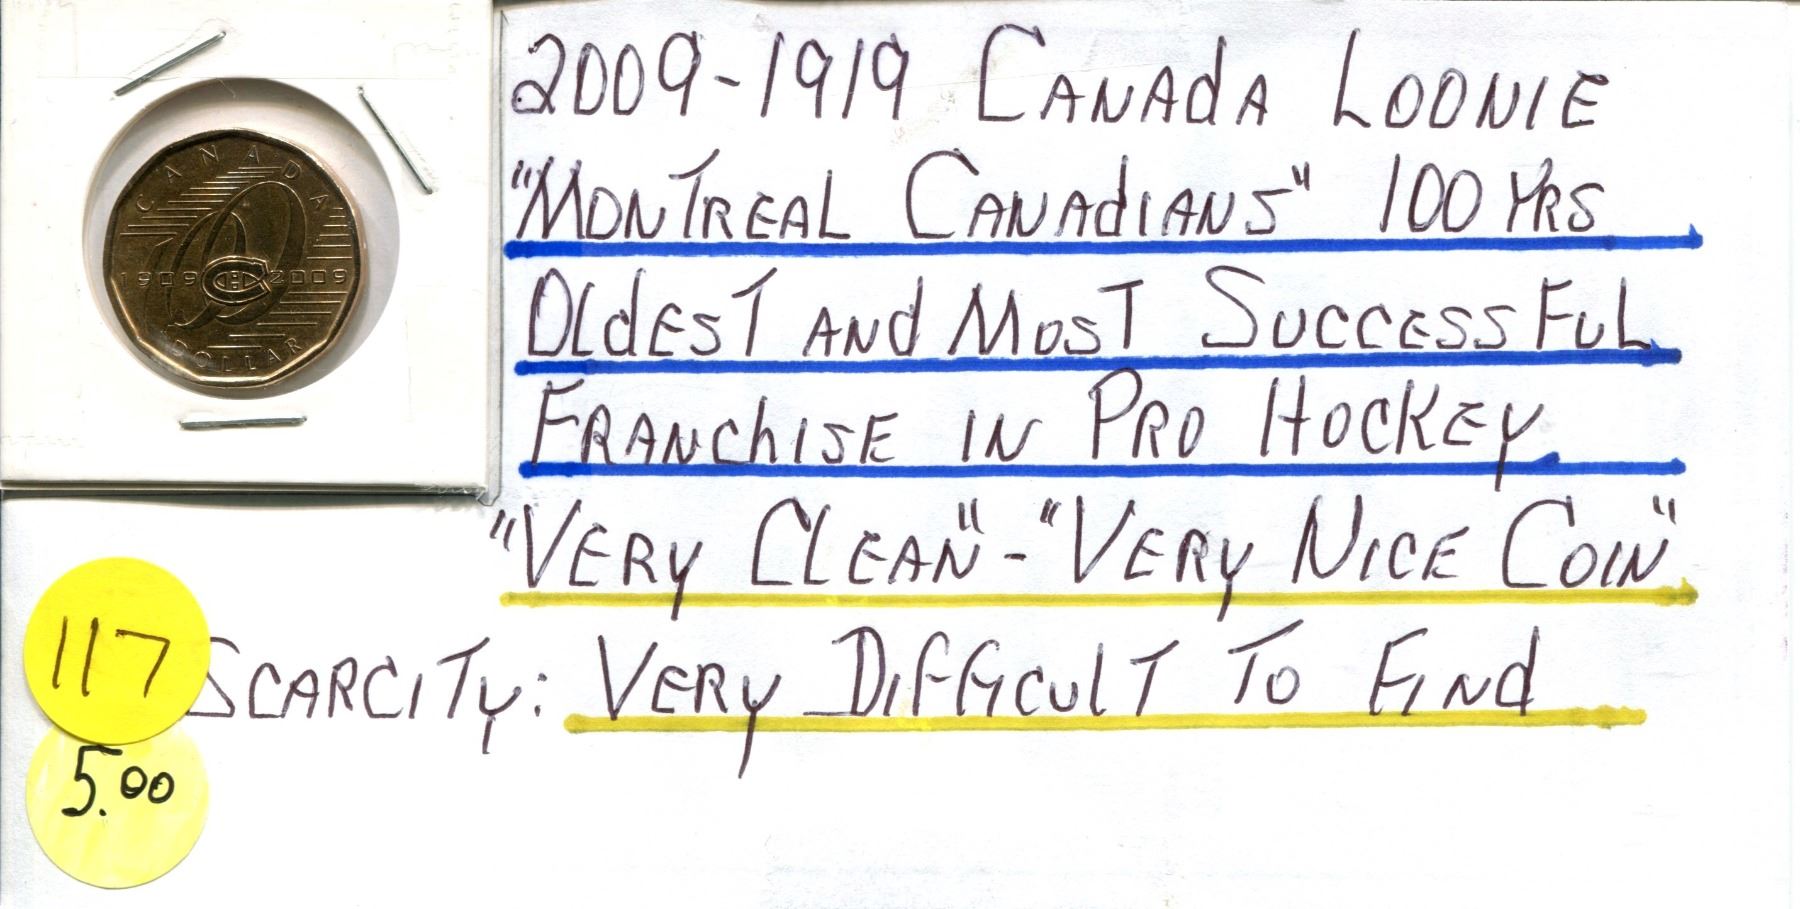 CANADA
1909 CH 2009
DOLLAR
2009-1919 CANADA LOONIE
"MONTREAL CANADIANS" 100 YRS
OLDEST AND MOST SUCCESSFUL
FRANCHISE IN PRO HOCKEY
"VERY CLEAN" - "VERY NICE COIN"
117
SCARCITY: VERY DIFFICULT TO FIND
5.00